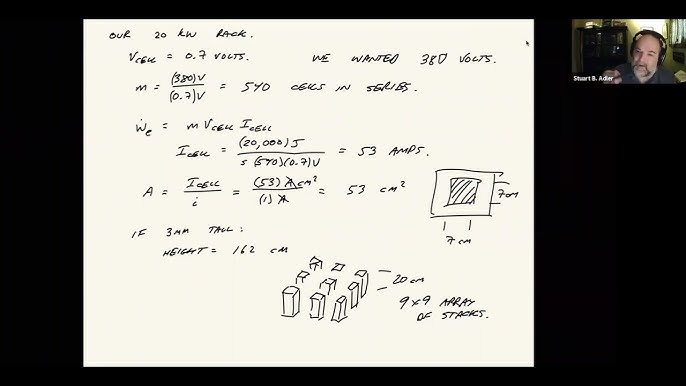 OUR 20 KW RACK.
VCELL = 0.7 VOLTS. WE WANTED 380 VOLTS.
m = (380)V / (0.7)V = 540 CELLS IN SERIES.
ẇe = m VCELL ICELL
ICELL = (20,000) J / s (540)(0.7)V = 53 AMPS.
A = ICELL / i = (53) A cm² / (1) A = 53 cm²
7cm
7cm
IF 3MM TALL:
HEIGHT = 162 CM
20cm
9x9 ARRAY
OF STACKS.
Stuart B. Adler